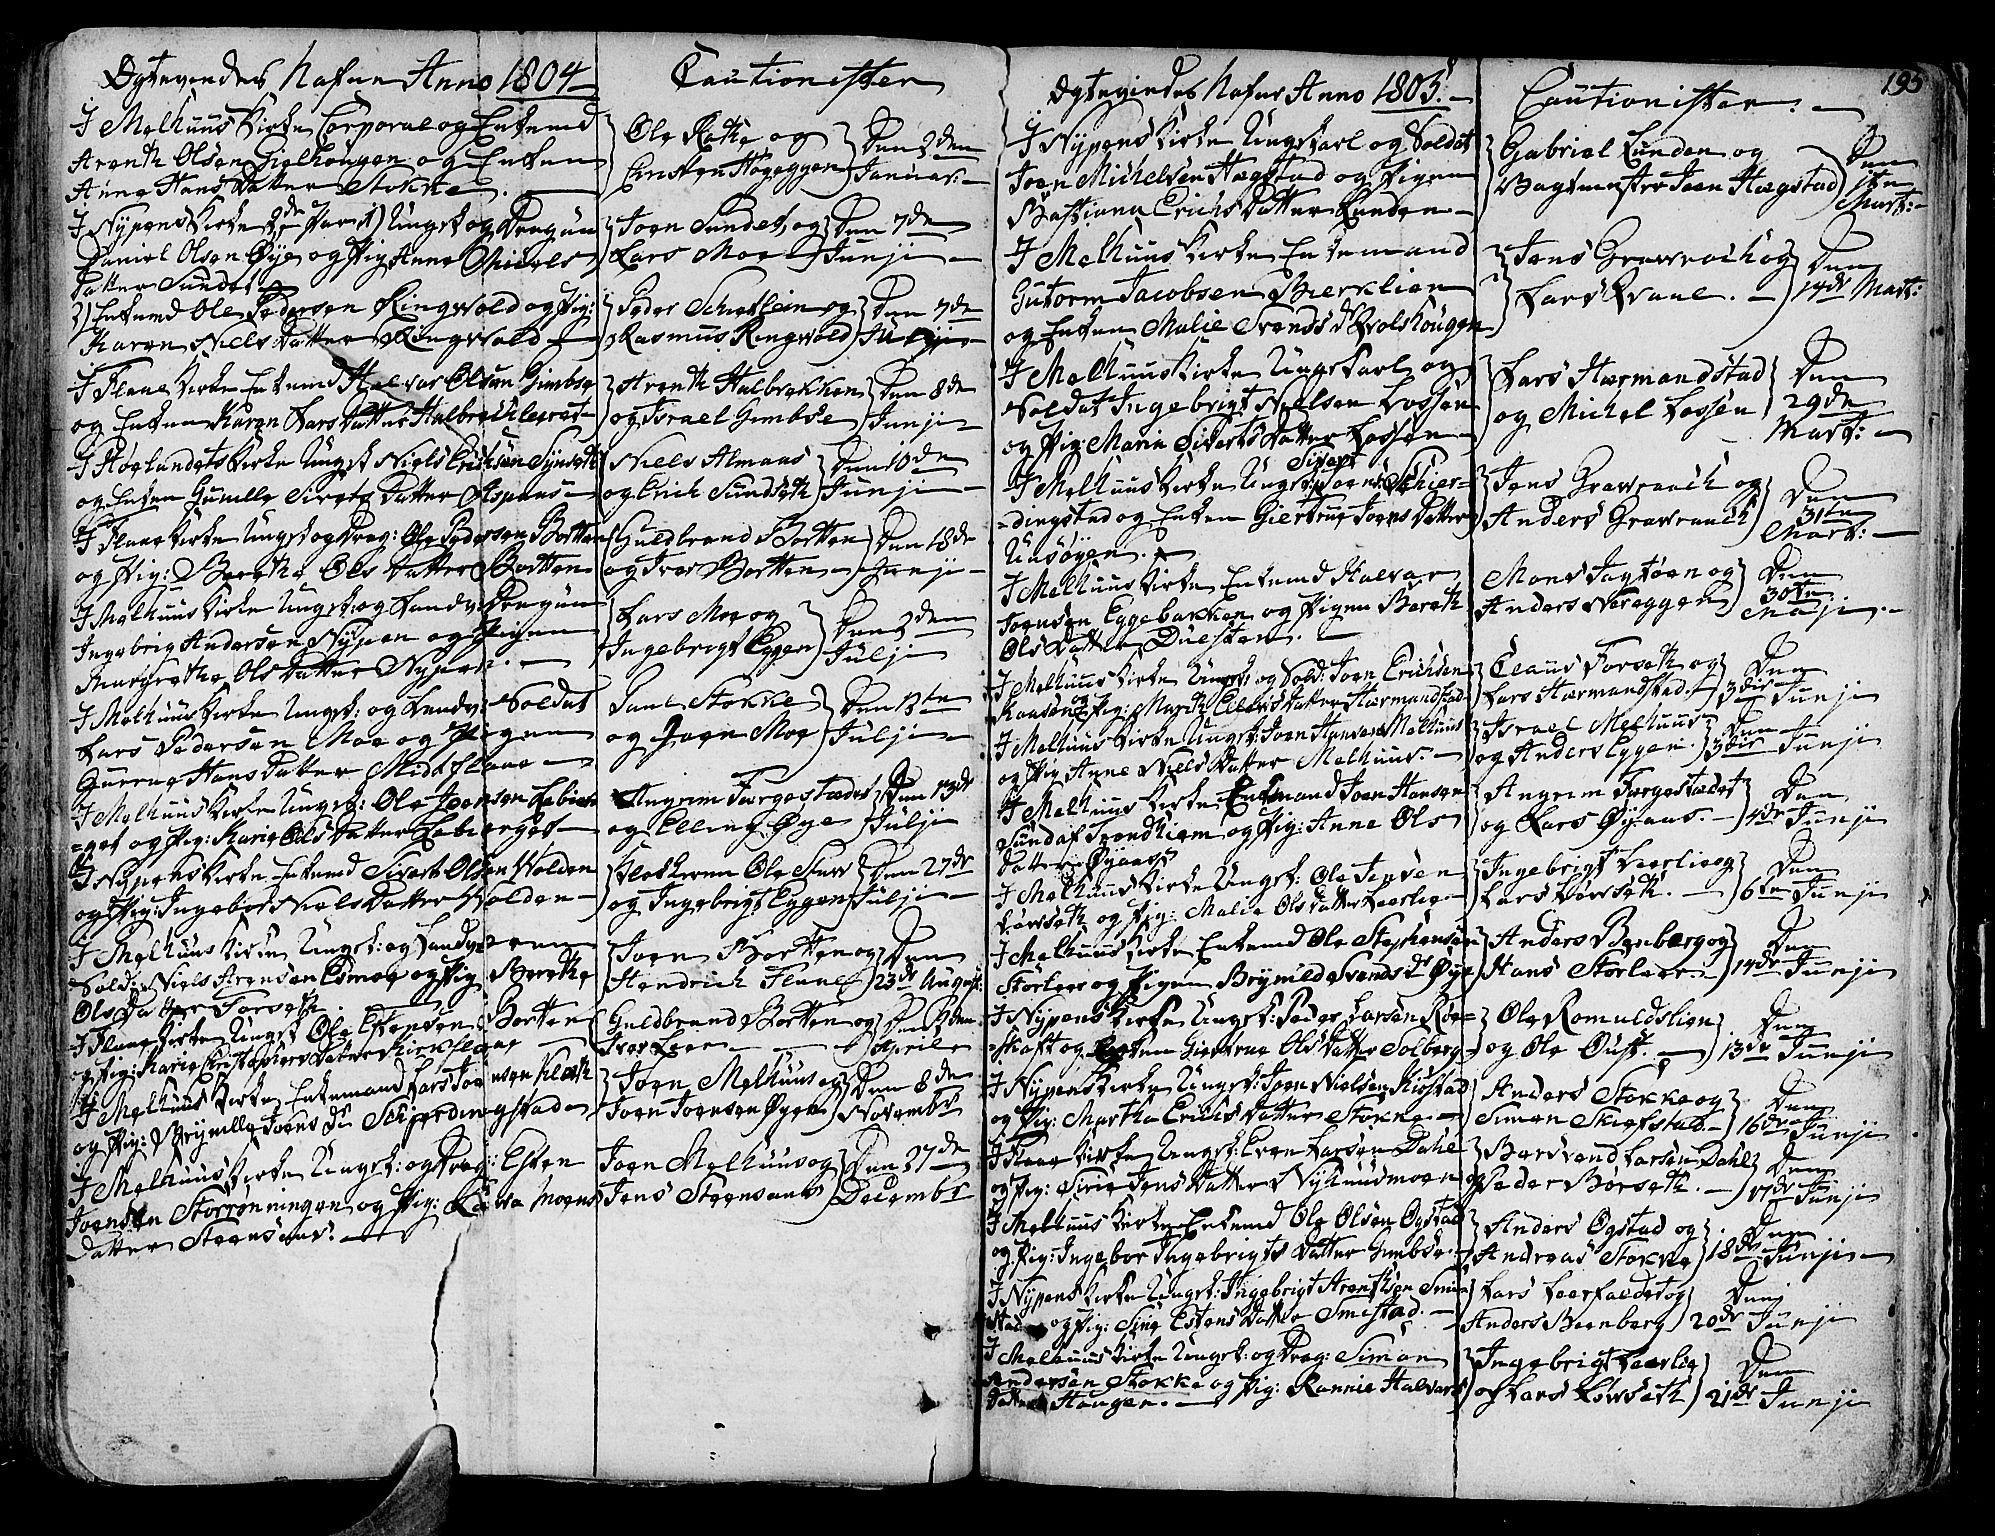 Ægteviedes Nafne Anno 1804
I Melhuus Kirke Corporal og Enkemd
Arenth Olsen Gielhougen og Enken
Anne Hans Datter Stokke
I Nypens Kirke Ungk og Dragun
Daniel Olsen Øye og Pig Anne Michels
Datter Sundet
2) Enkemd Ole Pedersen Ringwold og Pig:
Karen Niels Datter Ringwold
I Flaae Kirke Enkemd Halvor Olsen Gimbse
og Enken Karen Lars Datter Halbrekleret
I Høelandets Kirke Ungk Niels Erichsen Synseth
og Enken Gunille Siverts Datter Aspenes
I Flaae Kirke Ungk og Drag: Ole Pedersen Bortten
og Pig: Beretha Ols Datter Bortten
I Melhuus Kirke Ungk og Landv Dragun
Ingebrig Andersen Nypen og Pigen
Margretha Ols Datter Nypen.
I Melhuus Kirke Ungk: og Landv: Soldat
Lars Pedersen Moe og Pigen
Gurrue Hans Datter Midtflaae
I Melhuus Kirke Ungk: Ole Joensen Løbier-
get og Pig: Marie Ols Datter Løbierget
I Nypens Kirke Enkemd Sivert Olsen Wolden
og Pig: Ingebor Niels Datter Wolden
I Melhuus Kirke Ungk: og Landv
Sold: Niels Arensen Esmoe og Pig Beretha
Ols Datter Forseth
I Flaae Kirke Ungk Ole Estensen Bortten
og Pig: Marie Christophers Datter Kirkflaae
I Melhuus Kirke Enkemand Lars Joensen Kleth
og Pig: Brynille Joens Dr Schierdingstad
I Melhuus Kirke Ungk: og Drag: Esten
Joensen Storrønningen og Pig: Moens
Datter Steensaas.
Cautionister
Ole Rathe og
Cristen Høgeggen
Den 2den
Januar:
Joen Sundet og
Lars Moe
Den 7de
Junji
Peder Schetlein og
Rasmus Ringwold
Den 7de
Arenth Halbrekken
og Israel Gimbse
Den 8de
Junji
Niels Almaas
og Erich Sundseth
Den 10de
Junji
Guldbrand Bortten
og Iver Bortten
Den 18de
Junji
Lars Moe og
Ingebrigt Eggen
Den 2den
Julji
Paul Stokke
og Joen Moe
Den 13te
Julji
Angrim Fargestadet
og Elling Øye
Den 13de
Julji
Klokkeren Ole Stew
og Ingebrigt Eggen
Den 27de
Julji
Joen Bortten og
Hendrich Flaae
Den
23de August:
Guldbrand Bortten og
Iver Leer
Den 2den
April
Joen Melhuus og
Joen Joensen Øyen
Den 8de
Novembr
Joen Melhuus og
Jens Steensaas
Den 27de
Decembr
Ægteviedes Nafne Anno 1805.
I Nypens Kirke Ungkarl og Soldat
Joen Michelsen Hægstad og Pigen
Bastiana Erichs Datter Lunden
I Melhuus Kirke Enkemand
Gutorm Jacobsen Bierklien
og Enken Malie Svends Dr Wolshougen
I Melhuus Kirke Ungkarl og
Soldat Ingebrigt Nielsen Lossen
og Pig: Marie Siverts Datter Lossen
I Melhuus Kirke Ungk: Sivert Joens Schier-
dingstad og Enken Giertrue Joens Datter
Unsøyen.
I Melhuus Kirke Enkemd Halvor
Joensen Eggebakken og Pigen Bereth
Ols Datter Duesten.
I Melhuus Kirke Ungk: og Sold: Joen Erichsen
Kaasen og Pig: Marith Eilers Datter Hærmandstad
I Melhuus Kirke Ungk: Joen Hansen Melhuus
og Pig Anne Niels Datter Melhuus.
I Melhuus Kirke Enkemand Joen Hansen
Sund af Trondhiem og Pig: Anne Ols
Datter Øyaas
I Melhuus Kirke Ungk: Ole Jensen
Løvseth og Pig: Malie Ols Datter Leerlie
I Melhuus Kirke Enkemd Ole Stephensen
Storleer og Pigen Brynild Svends Dr Øye
I Nypens Kirke Ungk: Peder Larsen Roe-
skaft og Enken Giertrue Ols Datter Solberg
I Nypens Kirke Ungk: Joen Nielsen Kiøstad
og Pig: Martha Erichs Datter Stokke
I Flaae Kirke Ungk: Even Larsen Dahl
og Pig: Sirie Jens Datter Nyhuusmoen
I Melhuus Kirke Enkemd Ole Olsen Øgstad
og Pig: Ingebor Ingebrigts Datter Gimbse.
I Nypens Kirke Ungk: Ingebrigt Arenthsen Smi-
stad og Pig: Sine Estens Datter Smistad.
I Melhuus Kirke Ungk: og Drag: Simon
Andersen Stokke og Pig: Rannie Halvors
Datter Haugen.
Cautionister.
195
Gabriel Lunden og
Vagtmester Joen Hægstad
Den
1te
Mart:
Jens Grawraach og
Lars Kvaal.
Den
14de Mart:
Lars Hærmandstad
og Michel Lossen
Den
29de
Mart:
Jens Grawraach og
Anders Grawraach
Den
31te
Mart:
Mons Jagtøen og
Anders Noreggen
Den
30te
Maji.
Claus Forseth og
Lars Hærmandstad.
Den
3die Junji
Israel Melhuus
og Anders Eggen.
Den
3die Junji
Angrim Fargestadet
og Lars Øyaas.
Den
4de Junji
Ingebrigt Leerlie og
Lars Løvseth.
Den
6te Junji
Anders Benberg og
Hans Storleer
Den
14de Junji
Ole Romuldslien
og Ole Øust.
Den
13de Junji
Anders Stokke og
Simon Skiefstad.
Den
16de Junji
Bersvend Larsen Dahl
Peder Børseth.
Den
17de Junji
Anders Øgstad og
Andreas Stokke
Den
18de Junji
Lars Leerfaldet og
Anders Benberg
Den
20de Junji
Ingebrigt Leerlie
og Lars Løvseth
Den
21de Junji